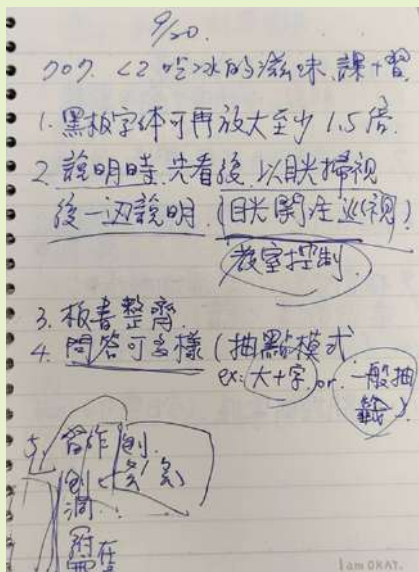 9/20.
707. L2 吃冰的滋味. 課+習
1. 黑板字体可再放大至少 1.5 倍.
2. 說明時. 先看後. 以目光掃視
後一边說明. (目光関注巡視)
教室控制.
3. 板書整齊.
4. 問答可多樣 (抽點模式
ex: 大十字 or 一般抽
籤)
5. 習作
I am OKAY.